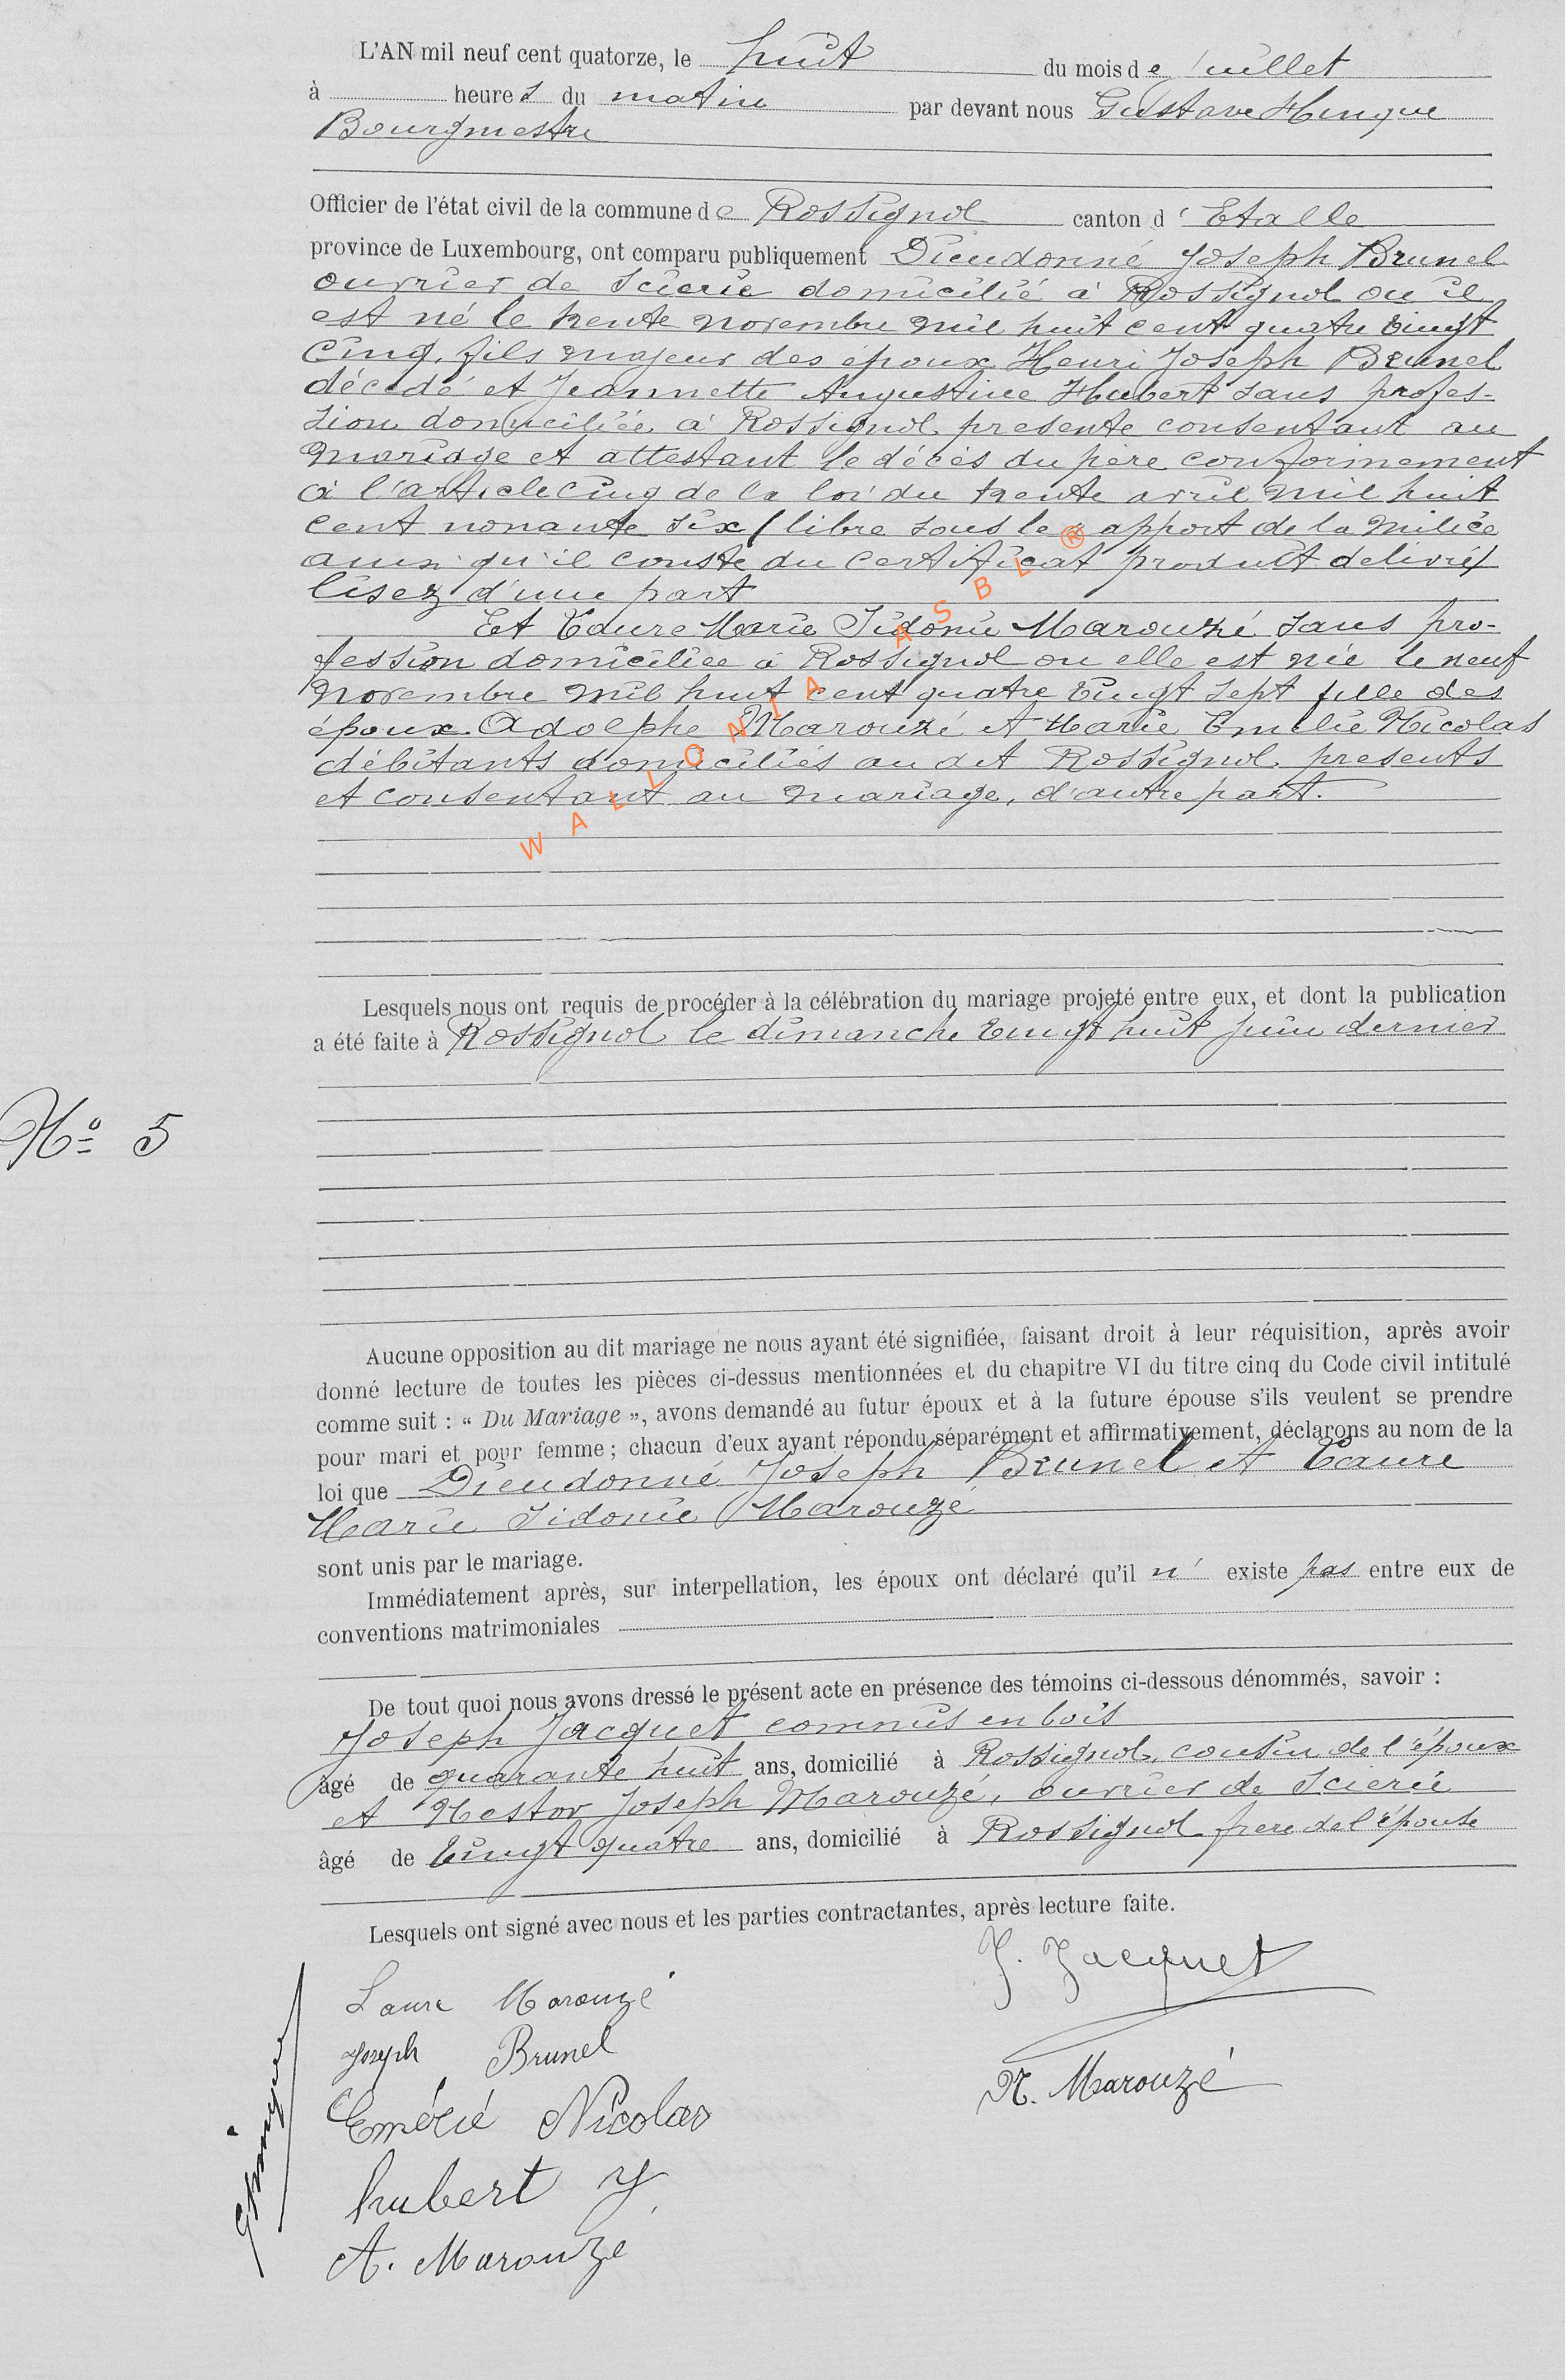 L'AN mil neuf cent quatorze, le huit du mois de Juillet
à heures du matin par devant nous Gustave Hurique
Bourgmestre
Officier de l'état civil de la commune de Rossignol canton d' Etalle
province de Luxembourg, ont comparu publiquement Dieudonné Joseph Brunel
ouvrier de scierie domicilié à Rossignol ou il
est né le trente novembre mil huit cent quatre vingt
cinq, fils majeur des époux Henri Joseph Brunel
décédé et Jeannette Augustine Hubert sans profes-
sion domiciliée à Rossignol présente consentant au
mariage et attestant le décès du père conformement
à l'article cinq de la loi du trente avril mil huit
cent nonante six / libre sous le rapport de la milice
ainsi qu'il conste du certificat produit delivré /
lisez d'une part
Et Laure Marie Sidonie Marouzé sans pro-
fession domiciliée à Rossignol ou elle est née le neuf
novembre mil huit cent quatre vingt sept fille des
époux Adolphe Marouzé et Marie Emélie Nicolas
débitants domiciliés au dit Rossignol, presents
et consentant au mariage, d'autre part.
WALLONIA ASBL ®
Lesquels nous ont requis de procéder à la célébration du mariage projeté entre eux, et dont la publication
a été faite à Rossignol le dimanche vingt huit juin dernier
Nº 5
Aucune opposition au dit mariage ne nous ayant été signifiée, faisant droit à leur réquisition, après avoir
donné lecture de toutes les pièces ci-dessus mentionnées et du chapitre VI du titre cinq du Code civil intitulé
comme suit : « Du Mariage », avons demandé au futur époux et à la future épouse s'ils veulent se prendre
pour mari et pour femme ; chacun d'eux ayant répondu séparément et affirmativement, déclarons au nom de la
loi que Dieudonné Joseph Brunel et Laure
Marie Sidonie Marouzé
sont unis par le mariage.
Immédiatement après, sur interpellation, les époux ont déclaré qu'il n' existe pas entre eux de
conventions matrimoniales
De tout quoi nous avons dressé le présent acte en présence des témoins ci-dessous dénommés, savoir :
Joseph Jacquet commis en bois
âgé de quarante huit ans, domicilié à Rossignol, cousin de l'époux
et Nestor Joseph Marouzé, ouvrier de scierie
âgé de vingt quatre ans, domicilié à Rossignol frere de l'épouse
Lesquels ont signé avec nous et les parties contractantes, après lecture faite.
J. Jacquet
Laure Marouzé
Joseph Brunel
N. Marouzé
Emélié Nicolas
hubert J
A. Marouzé